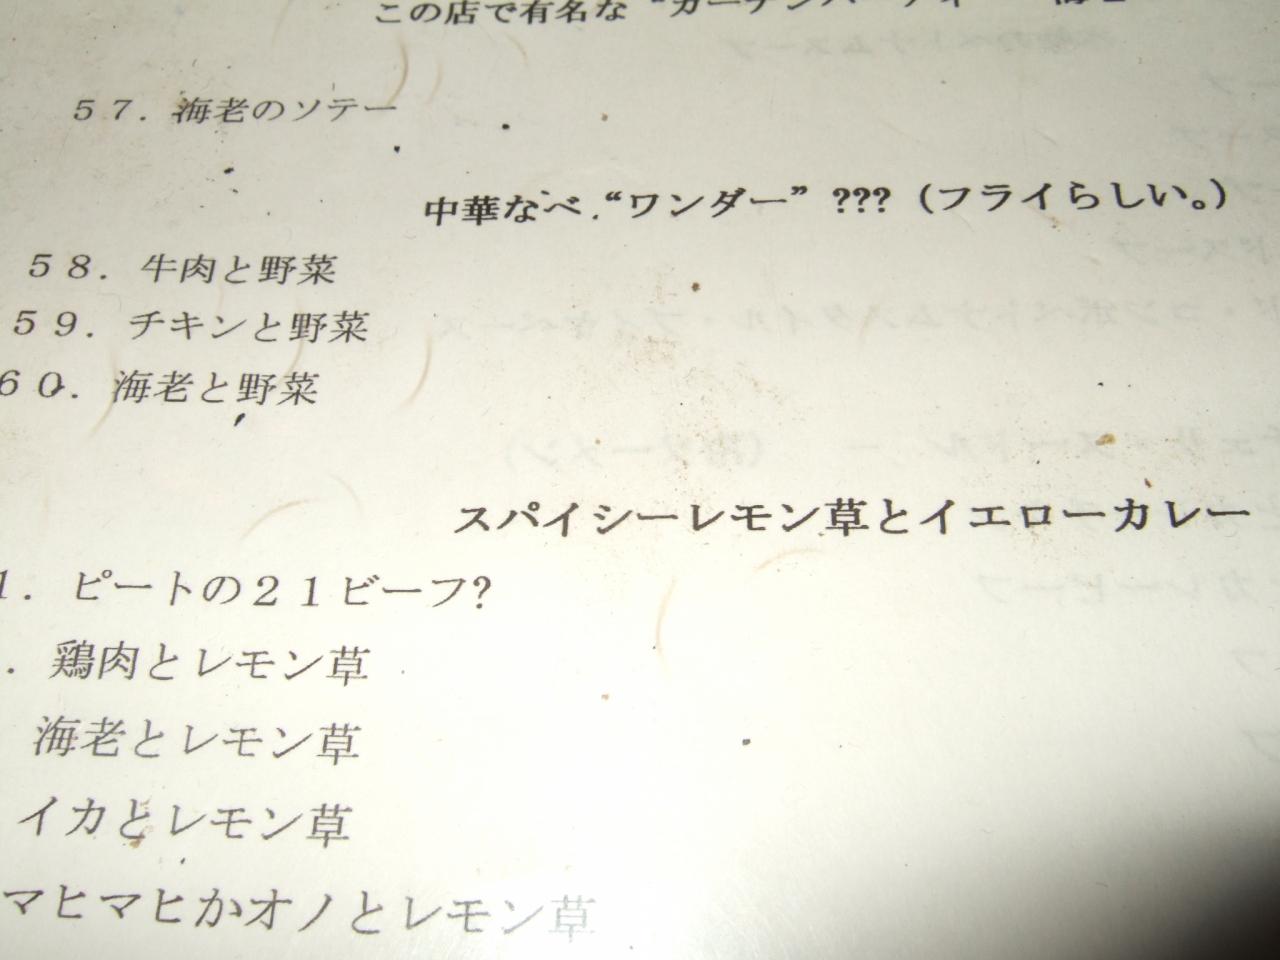 この店で有名な
57. 海老のソテー
中華なべ.“ワンダー” ???（フライらしい。）
58. 牛肉と野菜
59. チキンと野菜
60. 海老と野菜
スパイシーレモン草とイエローカレー
1. ピートの21ビーフ?
. 鶏肉とレモン草
海老とレモン草
イカとレモン草
マヒマヒかオノとレモン草